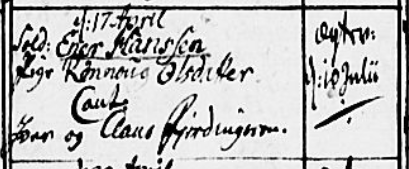 d: 17 April
Sold: Ener Hanssen
Pige Rønnoug Olsdatter
Caut:
Iver og Claus Fjerdingreen.
Cyter:
d: 10 Julii